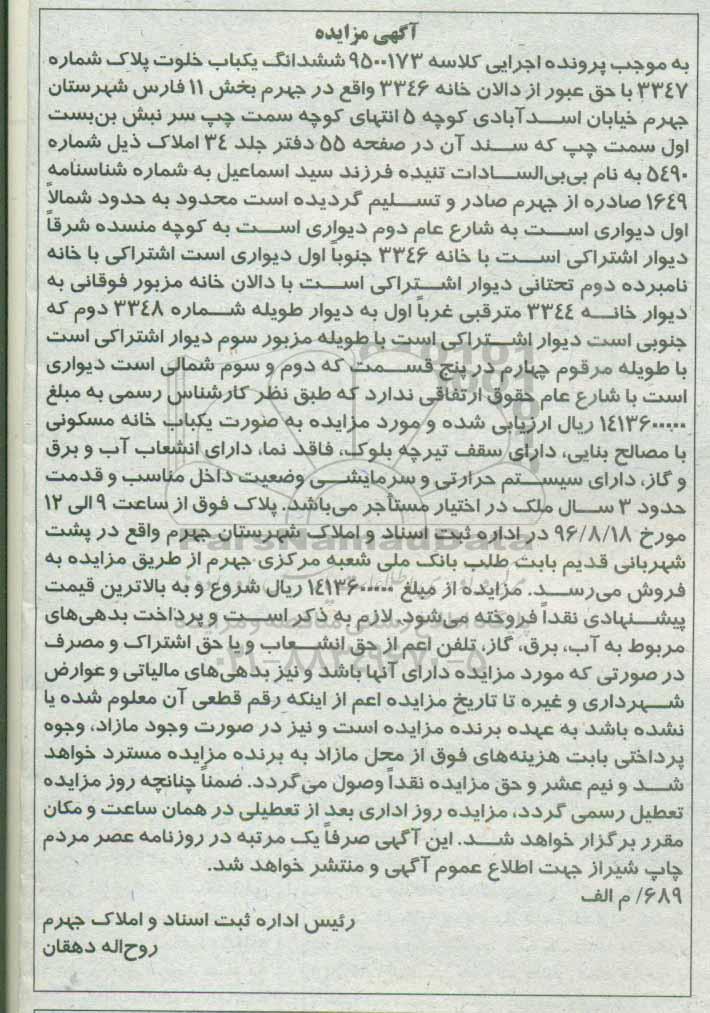 آگهی مزایده
به موجب پرونده اجرایی کلاسه ۹۵۰۰۱۷۳ ششدانگ یکباب خلوت پلاک شماره
۳۳۴۷ با حق عبور از دالان خانه ۳۳۴۶ واقع در جهرم بخش ۱۱ فارس شهرستان
جهرم خیابان اسدآبادی کوچه ۵ انتهای کوچه سمت چپ سر نبش بن‌بست
اول سمت چپ که سند آن در صفحه ۵۵ دفتر جلد ۳۴ املاک ذیل شماره
۵۴۹۰ به نام بی‌بی‌السادات تنیده فرزند سید اسماعیل به شماره شناسنامه
۱۶۴۹ صادره از جهرم صادر و تسلیم گردیده است محدود به حدود شمالاً
اول دیواری است به شارع عام دوم دیواری است به کوچه منسده شرقاً
دیوار اشتراکی است با خانه ۳۳۴۶ جنوباً اول دیواری است اشتراکی با خانه
نامبرده دوم تحتانی دیوار اشتراکی است با دالان خانه مزبور فوقانی به
دیوار خانه ۳۳۴۴ مترقبی غرباً اول به دیوار طویله شماره ۳۳۴۸ دوم که
جنوبی است دیوار اشتراکی است با طویله مزبور سوم دیوار اشتراکی است
با طویله مرقوم چهارم در پنج قسمت که دوم و سوم شمالی است دیواری
است با شارع عام حقوق ارتفاقی ندارد که طبق نظر کارشناس رسمی به مبلغ
۱۴۱۳۶۰۰۰۰۰ ریال ارزیابی شده و مورد مزایده به صورت یکباب خانه مسکونی
با مصالح بنایی، دارای سقف تیرچه بلوک، فاقد نما، دارای انشعاب آب و برق
و گاز، دارای سیستم حرارتی و سرمایشی وضعیت داخل مناسب و قدمت
حدود ۳ سال ملک در اختیار مستأجر می‌باشد. پلاک فوق از ساعت ۹ الی ۱۲
مورخ ۹۶/۸/۱۸ در اداره ثبت اسناد و املاک شهرستان جهرم واقع در پشت
شهربانی قدیم بابت طلب بانک ملی شعبه مرکزی جهرم از طریق مزایده به
فروش می‌رسد. مزایده از مبلغ ۱۴۱۳۶۰۰۰۰۰ ریال شروع و به بالاترین قیمت
پیشنهادی نقداً فروخته می‌شود. لازم به ذکر است و پرداخت بدهی‌های
مربوط به آب، برق، گاز، تلفن اعم از حق انشعاب و یا حق اشتراک و مصرف
در صورتی که مورد مزایده دارای آنها باشد و نیز بدهی‌های مالیاتی و عوارض
شهرداری و غیره تا تاریخ مزایده اعم از اینکه رقم قطعی آن معلوم شده یا
نشده باشد به عهده برنده مزایده است و نیز در صورت وجود مازاد، وجوه
پرداختی بابت هزینه‌های فوق از محل مازاد به برنده مزایده مسترد خواهد
شد و نیم عشر و حق مزایده نقداً وصول می‌گردد. ضمناً چنانچه روز مزایده
تعطیل رسمی گردد، مزایده روز اداری بعد از تعطیلی در همان ساعت و مکان
مقرر برگزار خواهد شد. این آگهی صرفاً یک مرتبه در روزنامه عصر مردم
چاپ شیراز جهت اطلاع عموم آگهی و منتشر خواهد شد.
۶۸۹/ م الف
رئیس اداره ثبت اسناد و املاک جهرم
روح‌اله دهقان
ParsNamadData
۰۲۱-۸۸۳۴۹۶۷۰-۵